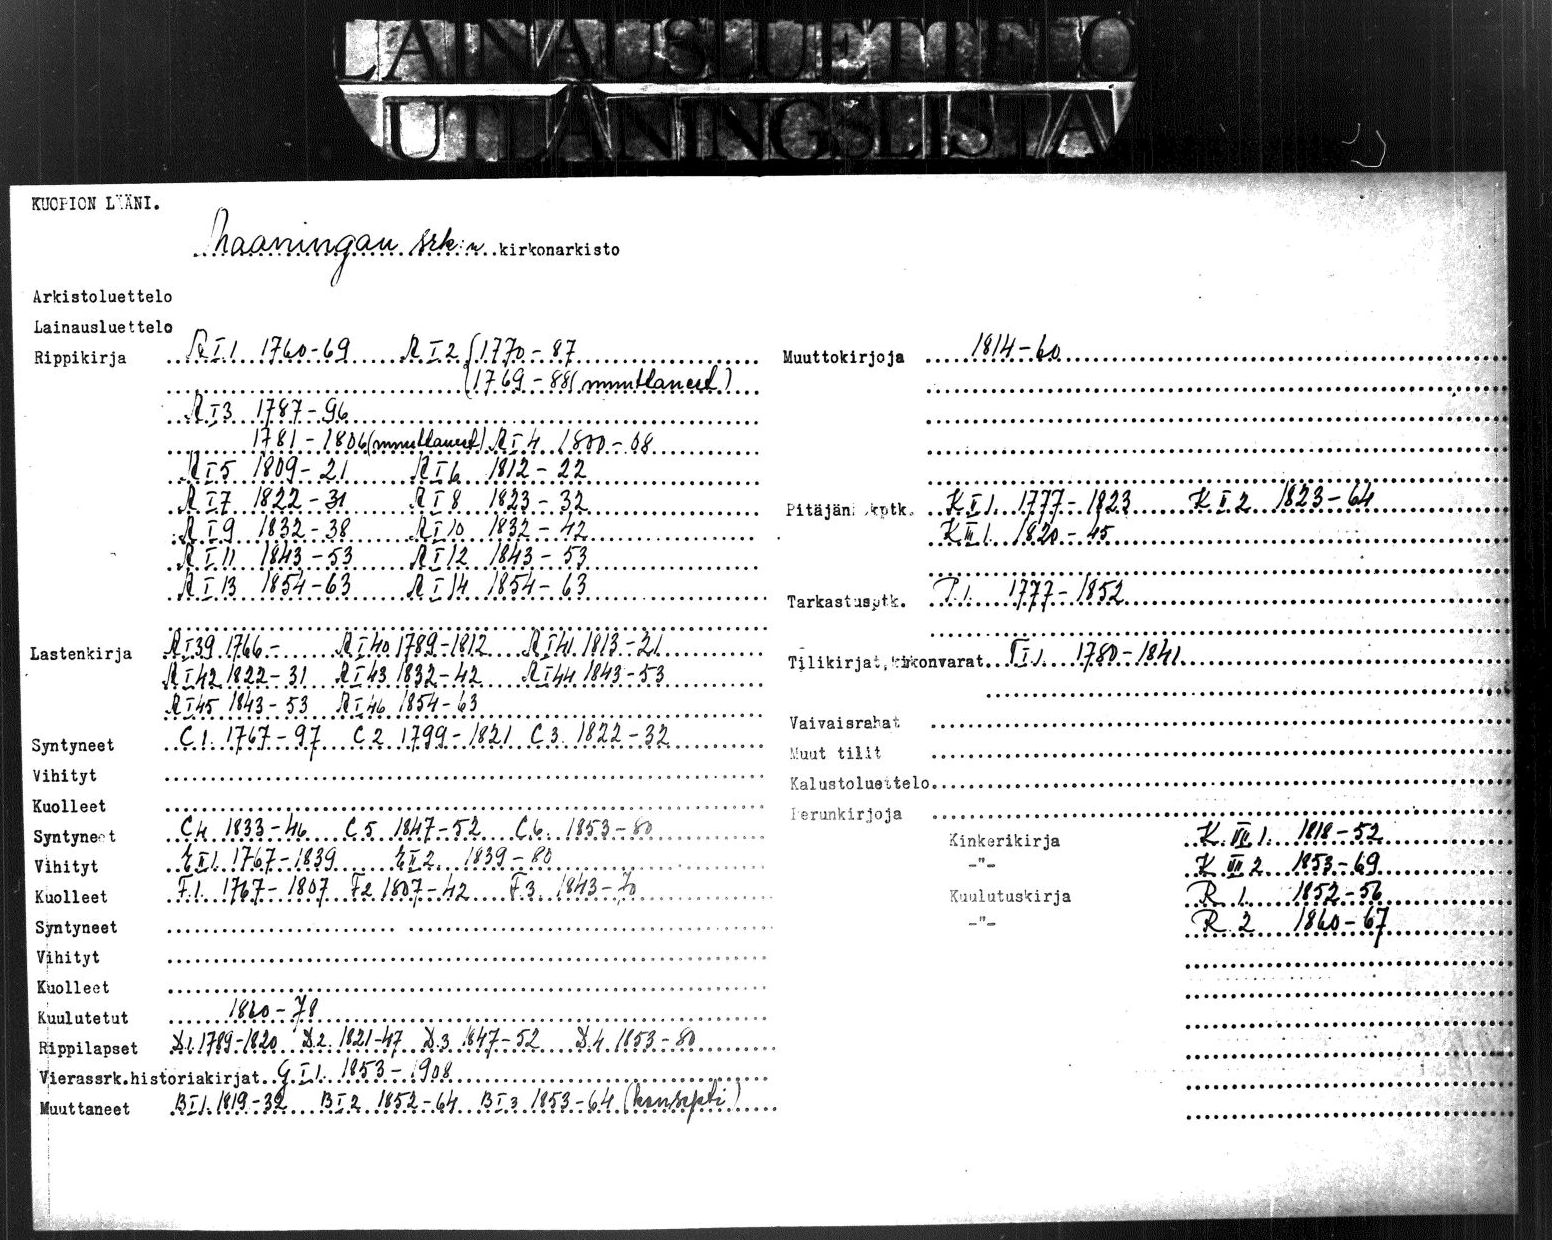 LAINAUSLUETTELO
UTLÅNINGSLISTA
KUOPION LÄÄNI.
Maaningan srk:n kirkonarkisto
Arkistoluettelo
Lainausluettelo
Rippikirja R I 1 1760-69 R I 2 { 1770-87
1769-88 (muuttaneet)
R I 3 1787-96
1781-1806 (muuttaneet) R I 4 1800-08
R I 5 1809-21 R I 6 1812-22
R I 7 1822-31 R I 8 1823-32
R I 9 1832-38 R I 10 1832-42
R I 11 1843-53 R I 12 1843-53
R I 13 1854-63 R I 14 1854-63
Lastenkirja R I 39 1766- R I 40 1789-1812 R I 41 1813-21
R I 42 1822-31 R I 43 1832-42 R I 44 1843-53
R I 45 1843-53 R I 46 1854-63
Syntyneet C 1. 1767-97 C 2 1799-1821 C 3. 1822-32
Vihityt
Kuolleet
Syntyneet C 4 1833-46 C 5 1847-52 C 6. 1853-80
Vihityt E I 1. 1767-1839 E I 2. 1839-80
Kuolleet F. 1. 1767-1807 F 2 1807-42 F. 3. 1843-70
Syntyneet
Vihityt
Kuolleet
Kuulutetut 1860-78
Rippilapset D. 1. 1789-1820 D. 2. 1821-47 D. 3 1847-52 D. 4. 1853-80
Vierassrk.historiakirjat G I 1. 1853-1908
Muuttaneet B I 1. 1819-32 B I 2 1852-64 B I 3 1853-64 (konsepti)
Muuttokirjoja 1814-60
Pitäjänkptk. K I 1. 1777-1823 K I 2 1823-64
K II 1. 1820-45
Tarkastusptk. P. 1. 1777-1852
Tilikirjat, kirkonvarat T I 1. 1780-1841
Vaivaisrahat
Muut tilit
Kalustoluettelo
Perunkirjoja
Kinkerikirja K. III 1. 1818-52
-"- K III 2 1853-69
Kuulutuskirja R. 1. 1852-56
-"- R. 2 1860-67